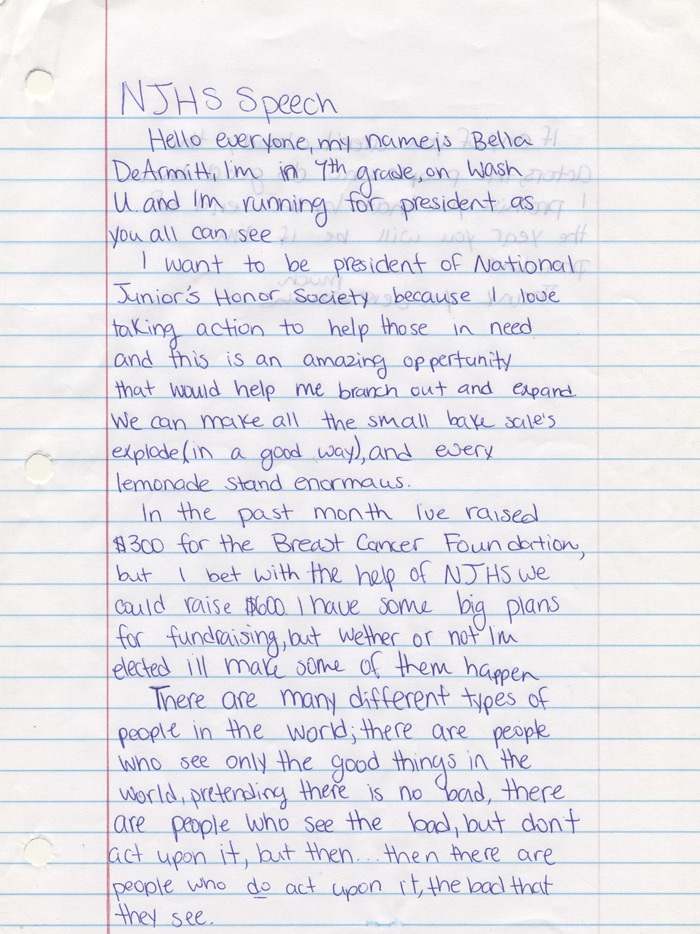 NJHS Speech
Hello everyone, my name is Bella
DeArmitt, I'm in 7th grade, on Wash
U. and I'm running for president as
you all can see.
I want to be president of National
Junior's Honor Society because I love
taking action to help those in need
and this is an amazing oppertunity
that would help me branch out and expand.
We can make all the small bake sale's
explode (in a good way), and every
lemonade stand enormaus.
In the past month I've raised
$300 for the Breast Cancer Foundation,
but I bet with the help of NJHS we
could raise $600. I have some big plans
for fundraising, but wether or not I'm
elected ill make some of them happen
There are many different types of
people in the world; there are people
who see only the good things in the
world, pretending there is no bad, there
are people who see the bad, but don't
act upon it, but then... then there are
people who do act upon it, the bad that
they see.